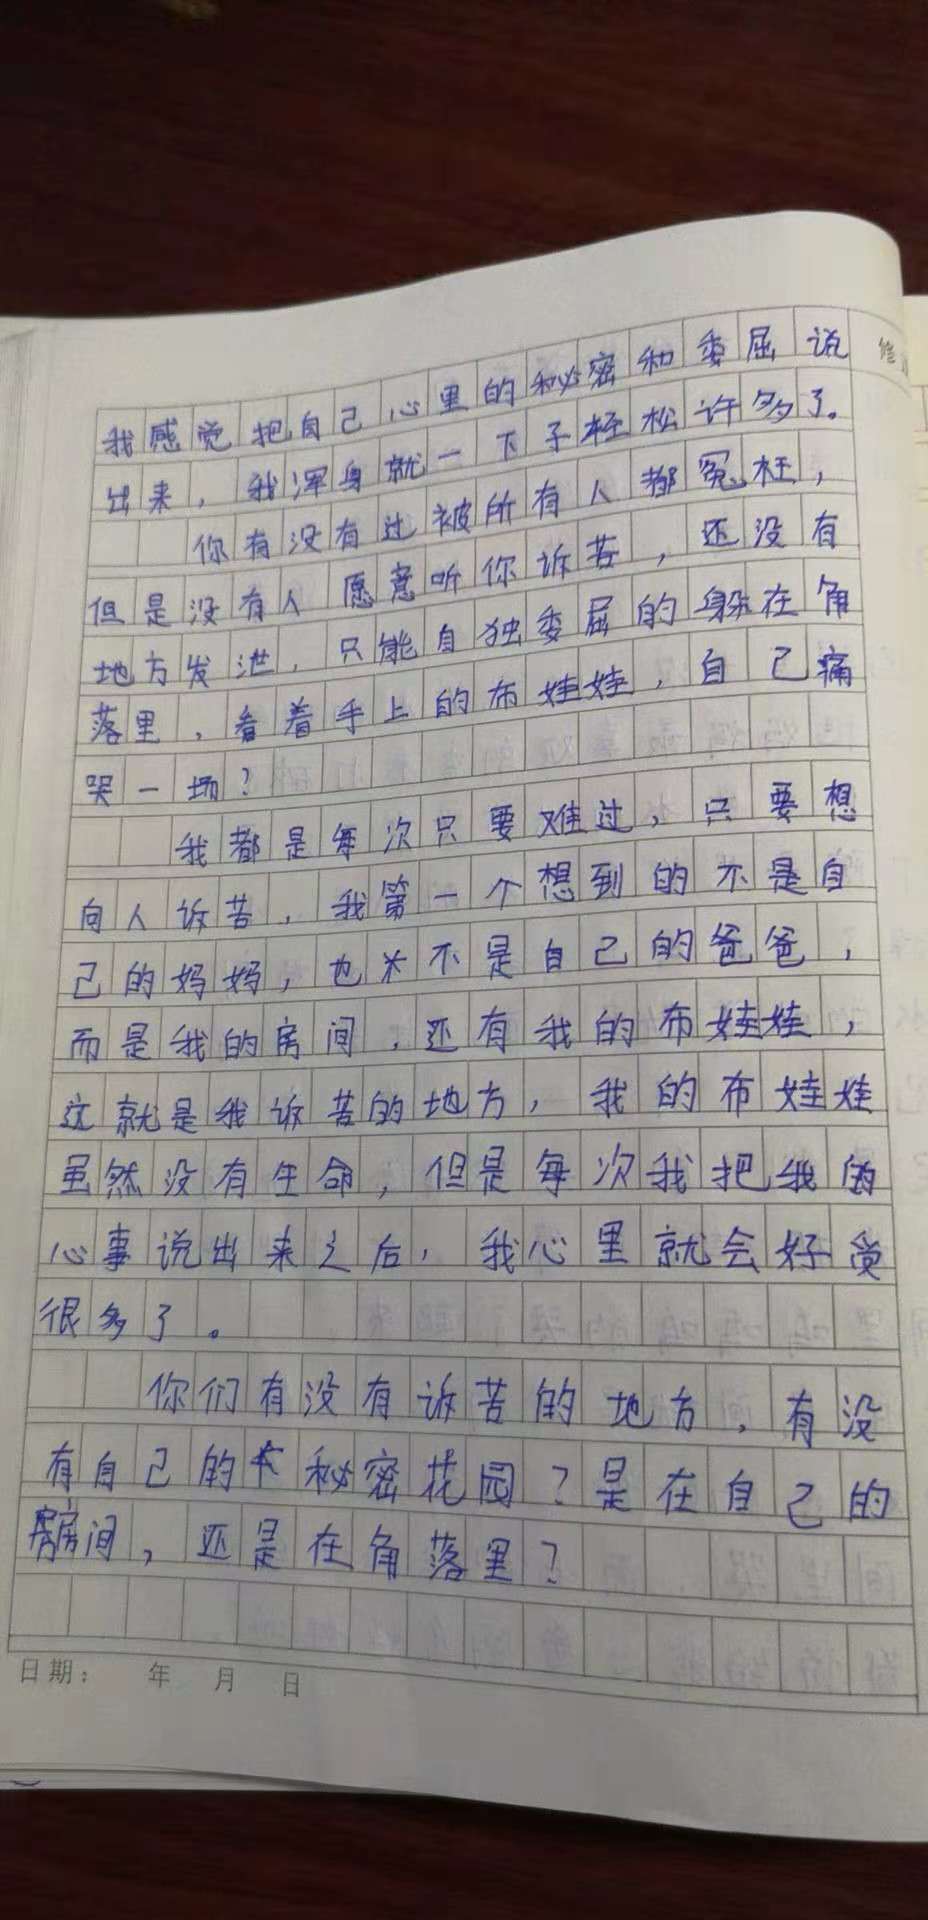 我感觉把自己心里的秘密和委屈说
出来，我浑身就一下子轻松许多了。
你有没有过被所有人都冤枉，
但是没有人愿意听你诉苦，还没有
地方发泄，只能自独委屈的躲在角
落里，看着手上的布娃娃，自己痛
哭一场？
我都是每次只要难过，只要想
向人诉苦，我第一个想到的不是自
己的妈妈，也不是自己的爸爸，
而是我的房间，还有我的布娃娃，
这就是我诉苦的地方，我的布娃娃
虽然没有生命，但是每次我把我的
心事说出来之后，我心里就会好受
很多了。
你们有没有诉苦的地方，有没
有自己的秘密花园？是在自己的
房间，还是在角落里？
日期： 年 月 日